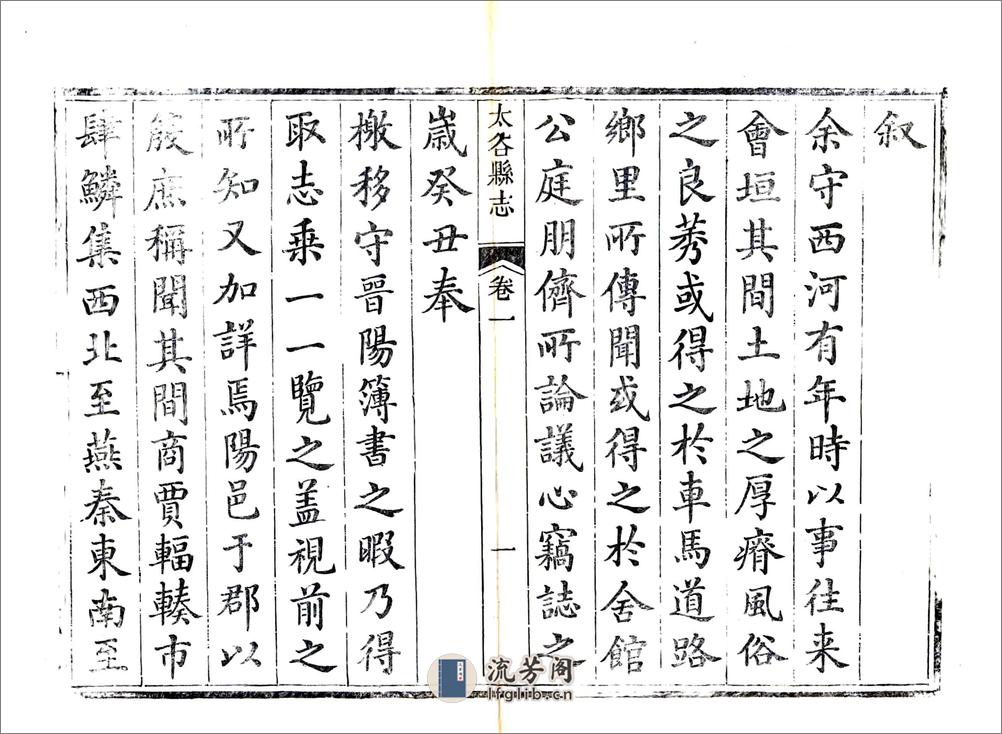 叙
余守西河有年時以事往来
會垣其間土地之厚瘠風俗
之良莠或得之於車馬道路
鄉里所傳聞或得之於舍館
公庭朋儕所論議心竊誌之
太谷縣志 卷一 一
歲癸丑奉
檄移守晉陽簿書之暇乃得
取志乗一一覽之盖視前之
所知又加詳焉陽邑于郡以
殷庶稱聞其間商賈輻輳市
肆鱗集西北至燕秦東南至
流芳阁
lfglib.cn